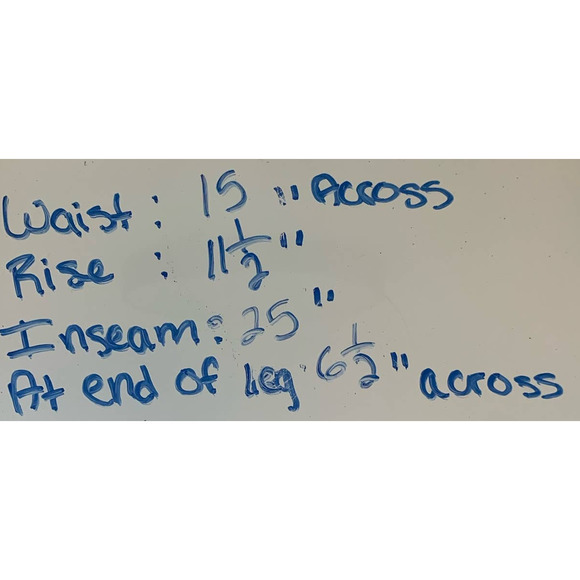 Waist: 15 " Across
Rise : 11 1/2 "
Inseam: 25 "
At end of leg 6 1/2 " across